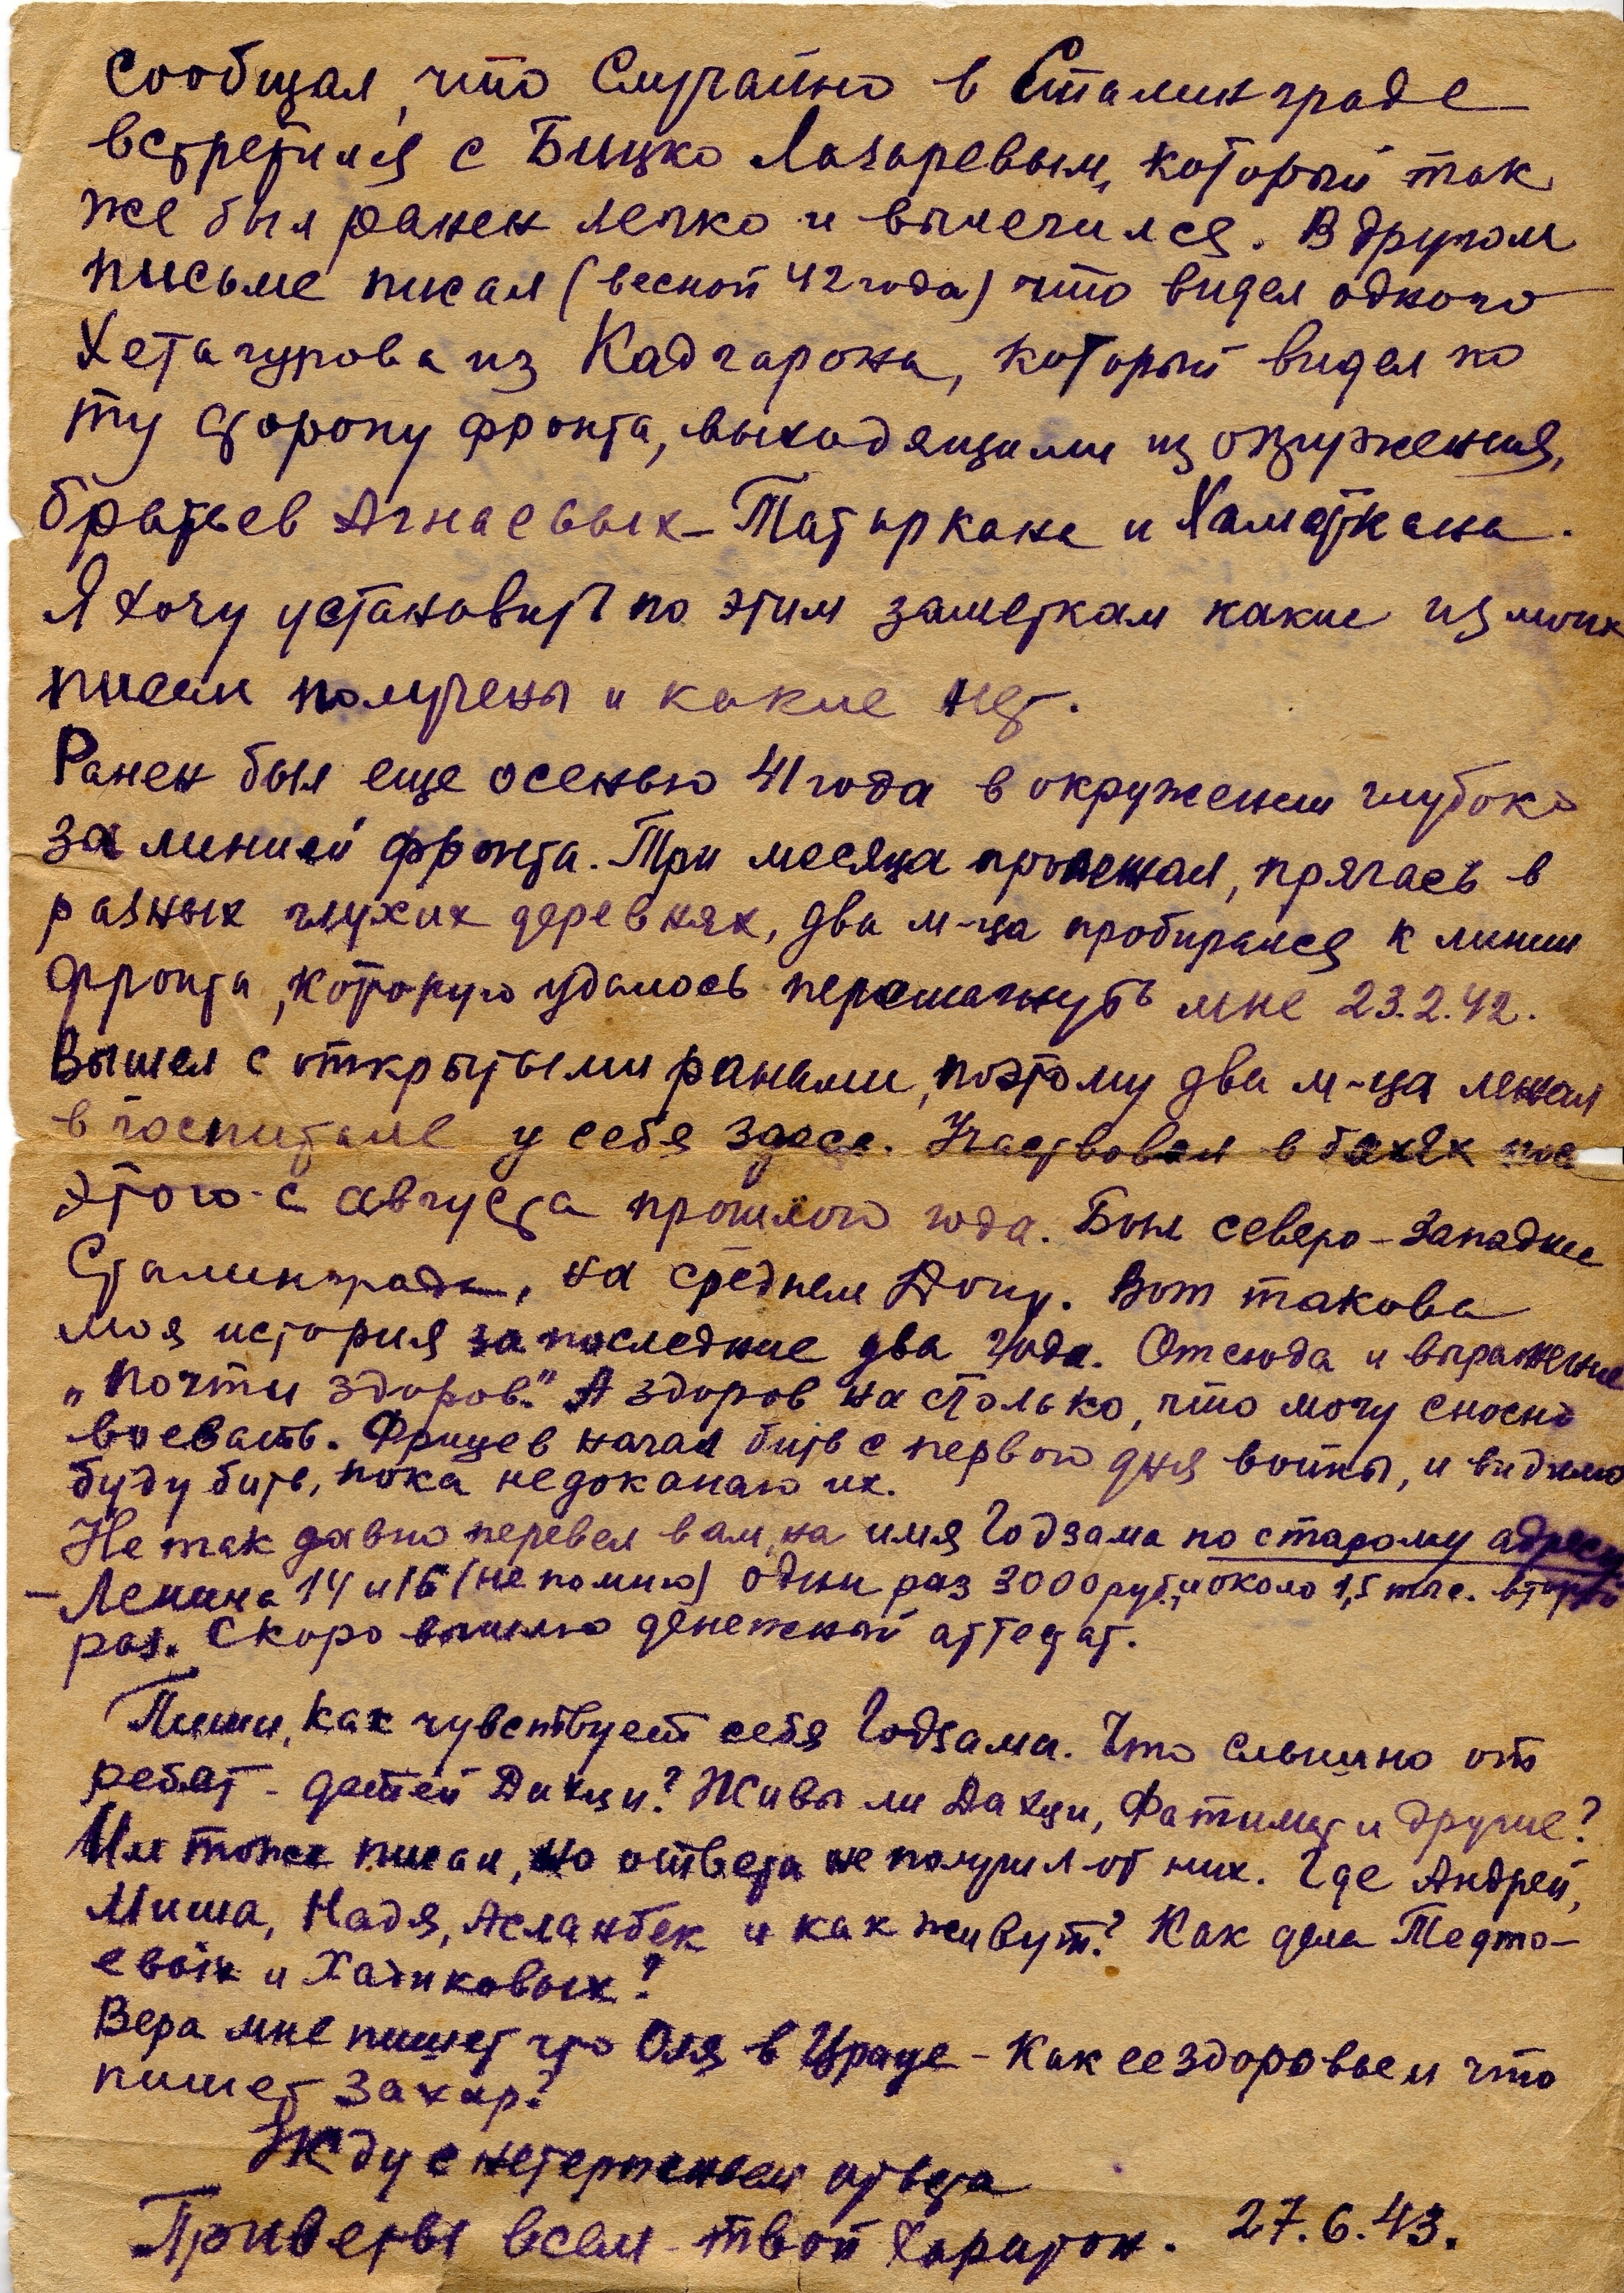 сообщал, что случайно в Сталинграде
встретился с Бицко Лазаревым, который так
же был ранен легко и вылечился. В другом
письме писал (весной 42 года) что видел одного
Хетагурова из Кадгарона, который видел по
ту сторону фронта, выходящими из окружения,
братьев Агнаевых - Татаркана и Хаметкана.
Я хочу установить по этим заметкам какие из моих
писем получены и какие нет.
Ранен был еще осенью 41 года в окружении глубоко
за линией фронта. Три месяца пролежал, прячась в
разных глухих деревнях, два м-ца пробирался к линии
фронта, которую удалось перешагнуть мне 23.2.42.
Вышел с открытыми ранами, поэтому два м-ца лежал
в госпитале у себя здесь. Участвовал в боях пос
этого с августа прошлого года. Был северо-западнее
Сталинграда, на среднем Дону. Вот такова
моя история за последние два года. Отсюда и выражение
„почти здоров." А здоров на столько, что могу сносно
воевать. Фрицев начал бить с первого дня войны, и видимо
буду бить, пока не доканаю их.
Не так давно перевел вам, на имя Годзама по старому адресу
- Ленина 14 и 16 (не помню) один раз 3000 руб., и около 1,5 тыс. второй
раз. Скоро вышлю денежный аттестат.
Пиши, как чувствует себя Годзама. Что слышно от
ребят - детей Дахци? Живы ли Дахци, Фатимат и другие?
Им тоже писал, но ответа не получил от них. Где Андрей,
Миша, Надя, Асланбек и как живут? Как дела Тедто-
евых и Хадиковых?
Вера мне пишет что Оля в Црауе - Как ее здоровье и что
пишет Захар?
Жду с нетерпением ответа
Приветы всем - твой Харитон. 27.6.43.